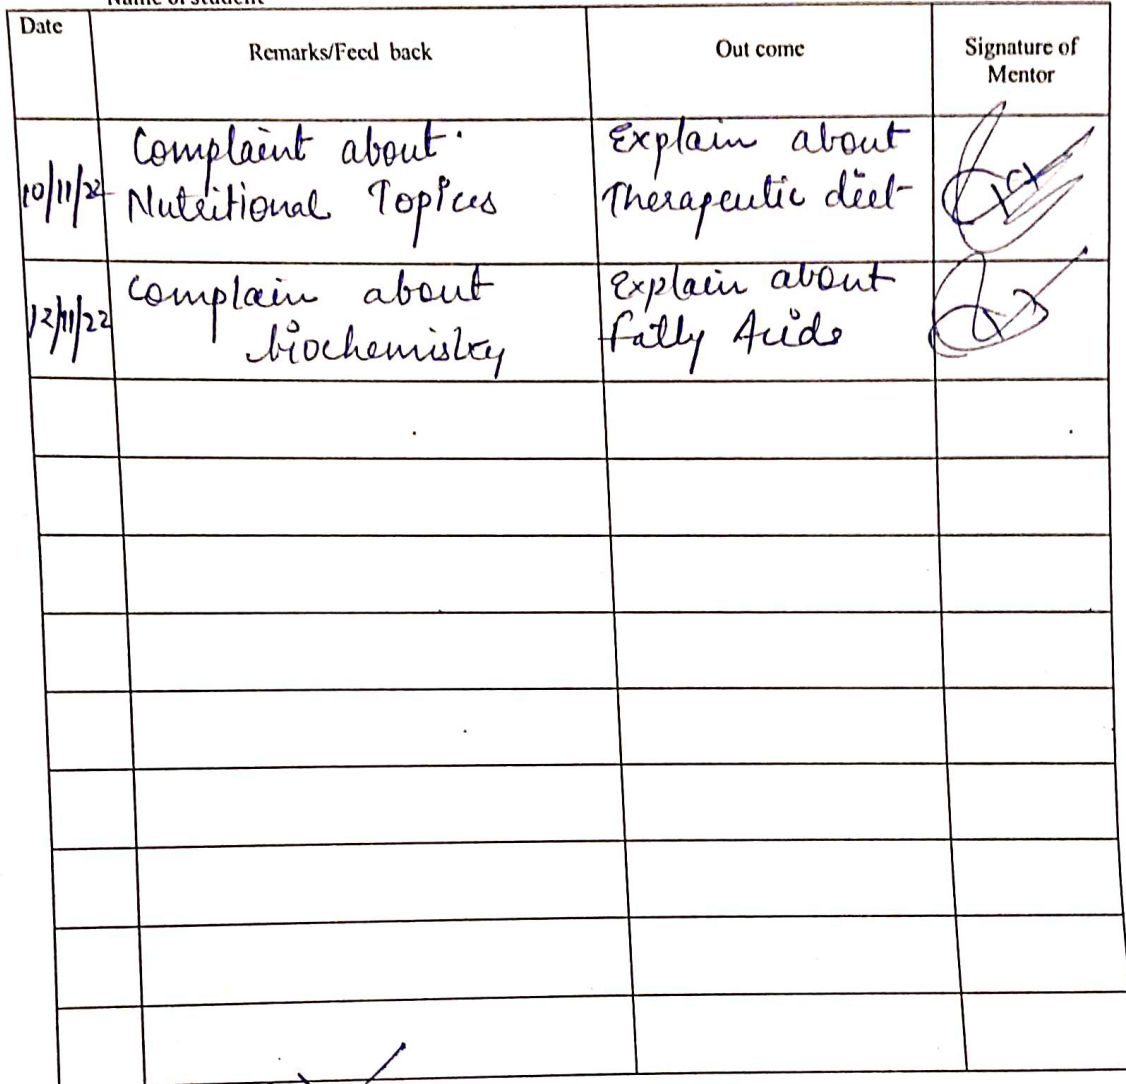 Name of student
Date
Remarks/Feed back
Out come
Signature of
Mentor
10/11/22
Complaint about
Nutritional Topics
Explain about
Therapeutic diet
12/11/22
Complain about
biochemistry
Explain about
fatty Acids